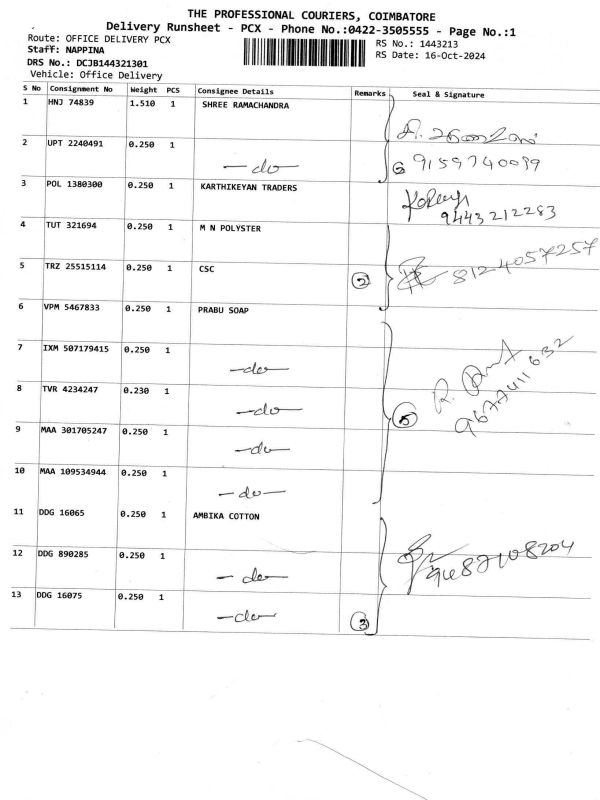 THE PROFESSIONAL COURIERS, COIMBATORE
Delivery Runsheet - PCX - Phone No.:0422-3505555 - Page No.:1
Route: OFFICE DELIVERY PCX
Staff: NAPPINA
DRS No.: DCJB144321301
Vehicle: Office Delivery
RS No.: 1443213
RS Date: 16-Oct-2024
S No Consignment No Weight PCS Consignee Details Remarks Seal & Signature
1 HNJ 74839 1.510 1 SHREE RAMACHANDRA
2 UPT 2240491 0.250 1 —do— 9159740099
3 POL 1380300 0.250 1 KARTHIKEYAN TRADERS 9443212283
4 TUT 321694 0.250 1 M N POLYSTER
5 TRZ 25515114 0.250 1 CSC 2 8124057257
6 VPM 5467833 0.250 1 PRABU SOAP
7 IXM 507179415 0.250 1 —do—
8 TVR 4234247 0.230 1 —do— 5 9677411632
9 MAA 301705247 0.250 1 —do—
10 MAA 109534944 0.250 1 —do—
11 DDG 16065 0.250 1 AMBIKA COTTON
12 DDG 890285 0.250 1 —do— 9487108204
13 DDG 16075 0.250 1 —do— 3